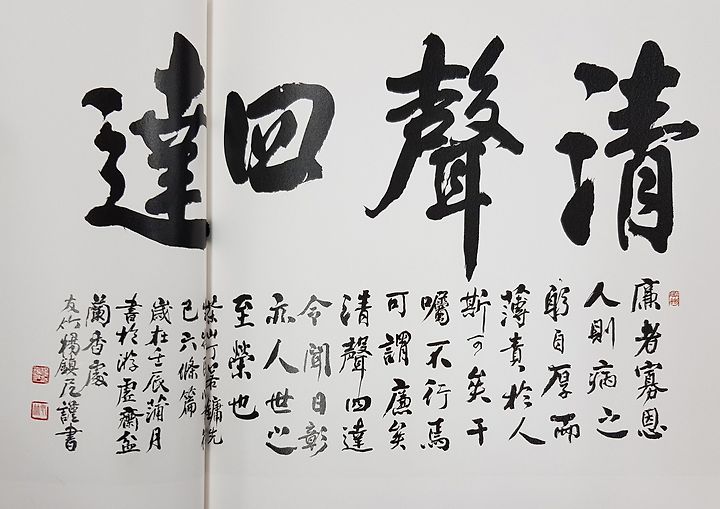 清聲四達
廉者寡恩
人則病之
躬自厚而
薄責於人
斯可矣干
囑不行焉
可謂廉矣
清聲四達
令聞日彰
亦人世之
至榮也
茶山丁若鏞先
己六條篇
歲在壬辰蒲月
書於游虛齋盆
蘭香處
友竹楊鎭謹書